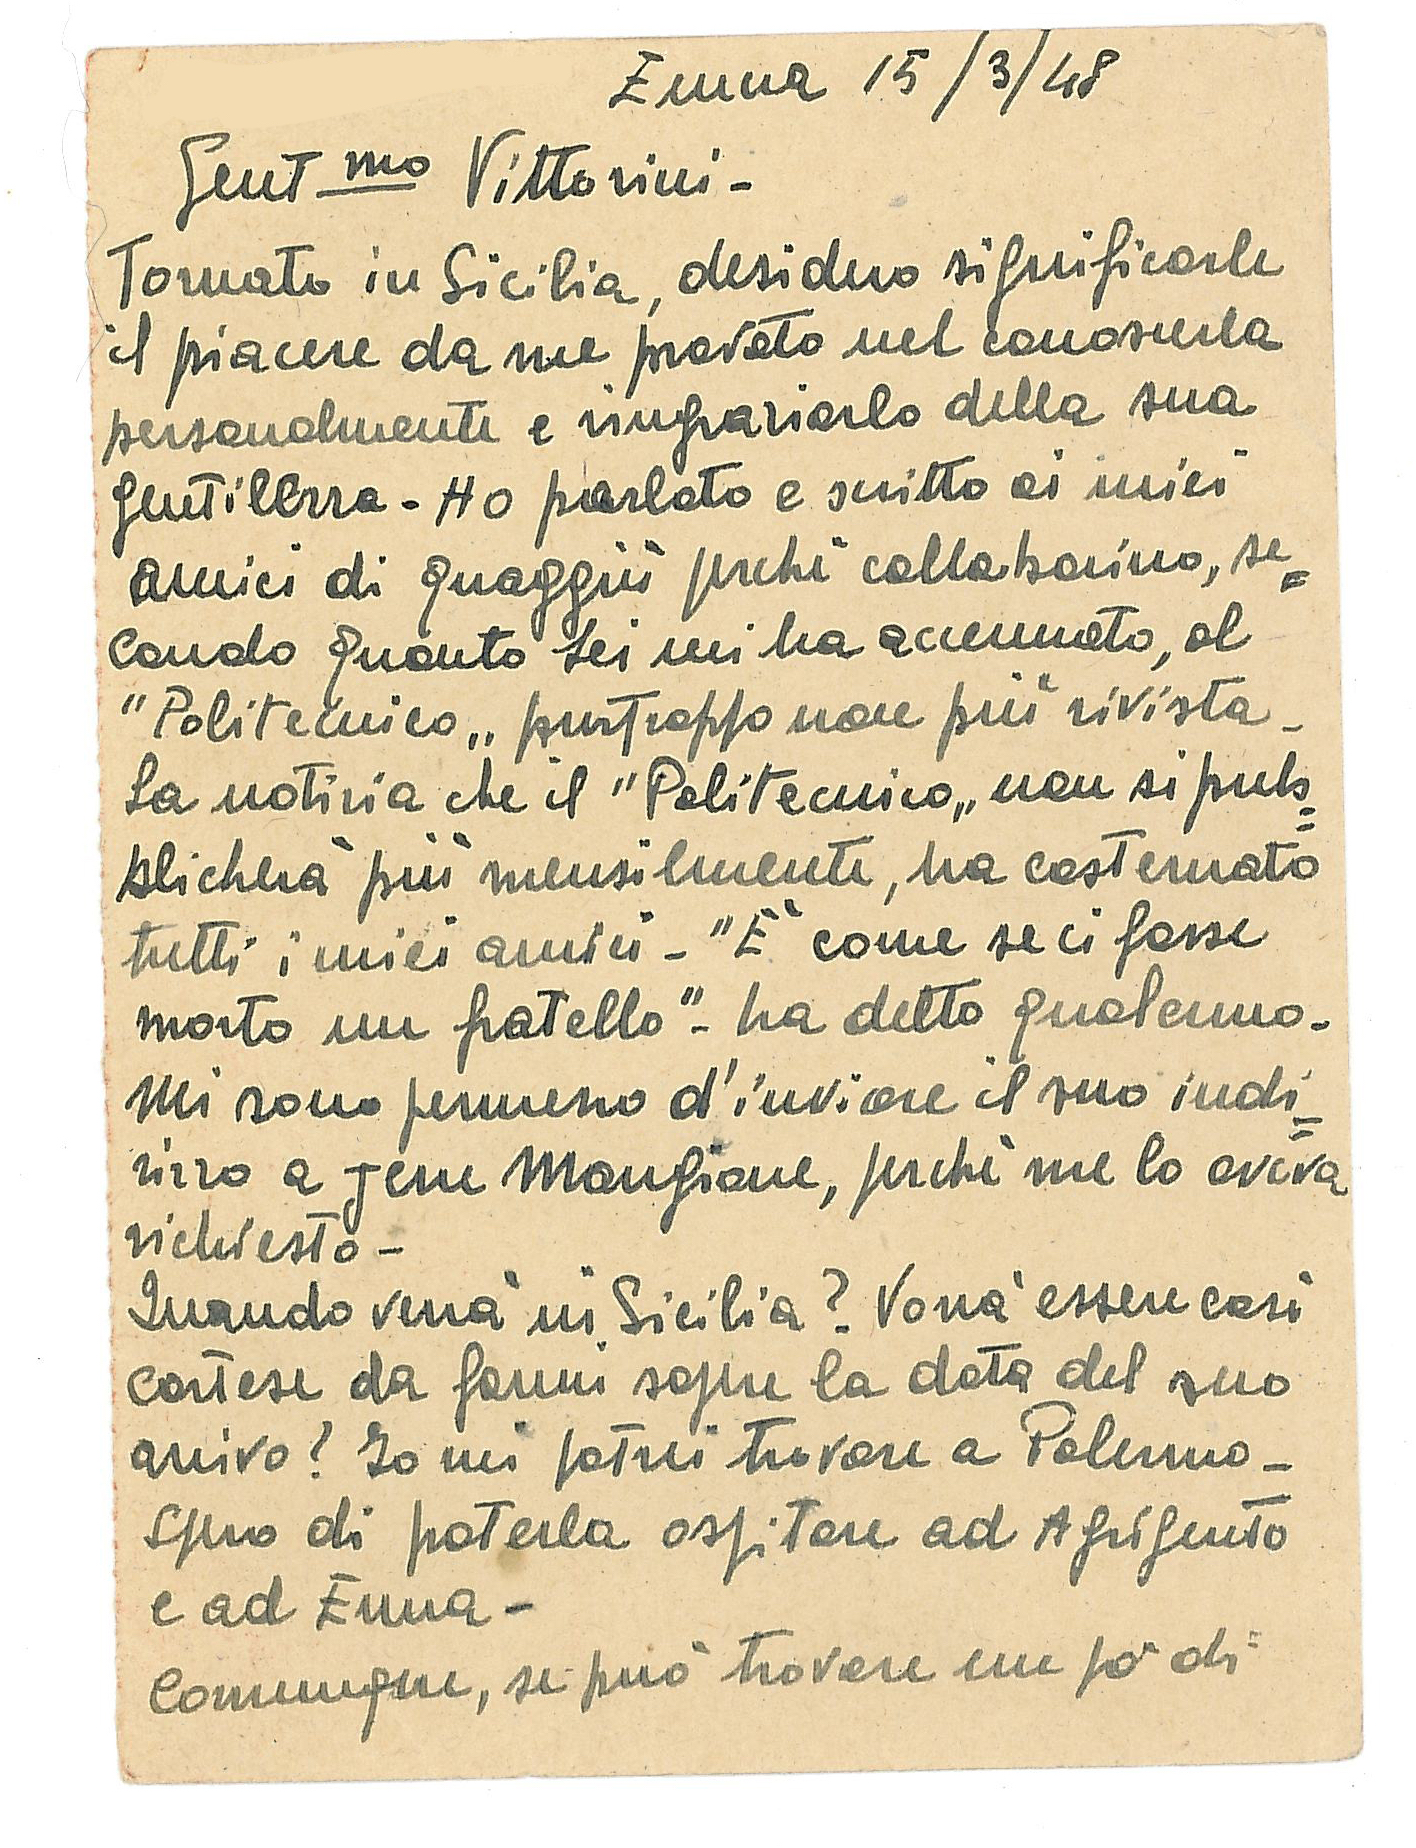 Enna 15/3/48
Gent mo Vittorini -
Tornato in Sicilia, desidero significarle
il piacere da me provato nel conoscerla
personalmente e ringraziarlo della sua
gentilezza - Ho parlato e scritto ai miei
amici di quaggiù perchè collaborino, se=
condo quanto Lei mi ha accennato, al
"Politecnico" purtroppo non più rivista -
La notizia che il "Politecnico" non si pub=
blicherà più mensilmente, ha costernato
tutti i miei amici - "È come se ci fosse
morto un fratello" - ha detto qualcuno -
Mi sono permesso d'inviare il suo indi=
rizzo a Jerre Mangione, perchè me lo aveva
richiesto -
Quando verrà in Sicilia? Vorrà essere così
cortese da farmi sapere la data del suo
arrivo? Io mi potrei trovare a Palermo -
Spero di poterla ospitare ad Agrigento
e ad Enna -
Comunque, se può trovare un po' di